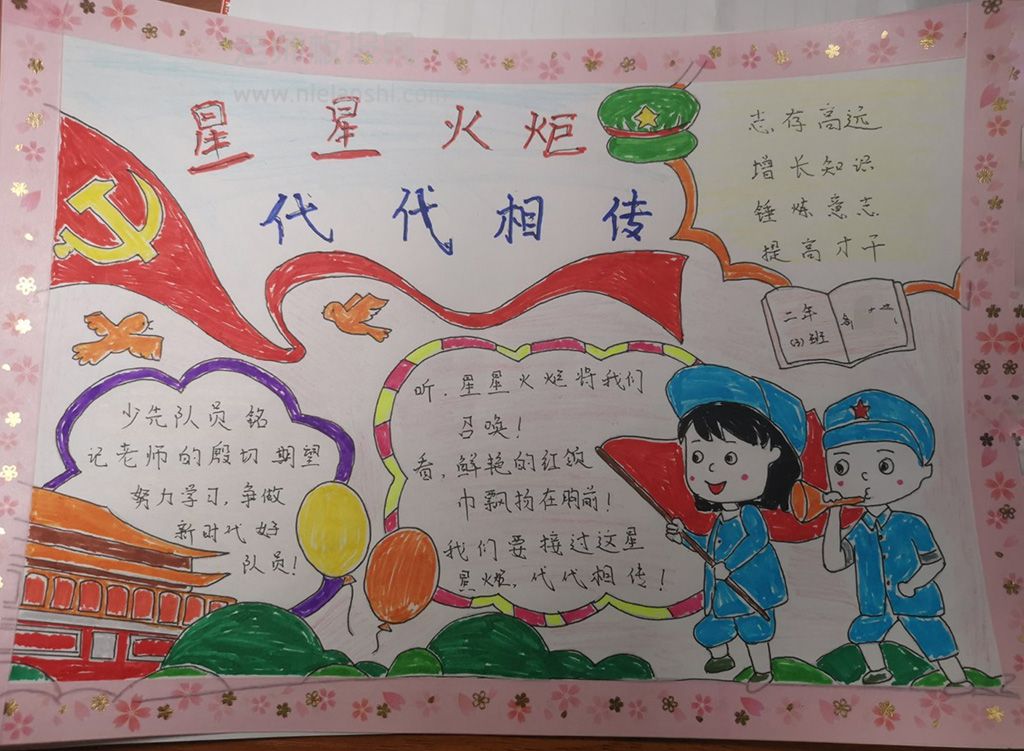 星 星 火 炬
代 代 相 传
志存高远
增长知识
锤炼意志
提高才干
二年
(3)班
少先队员铭
记老师的殷切期望
努力学习,争做
新时代好
队员!
听,星星火炬将我们
召唤!
看,鲜艳的红领
巾飘扬在胸前!
我们要接过这星
星火炬,代代相传!
www.nielaoshi.com